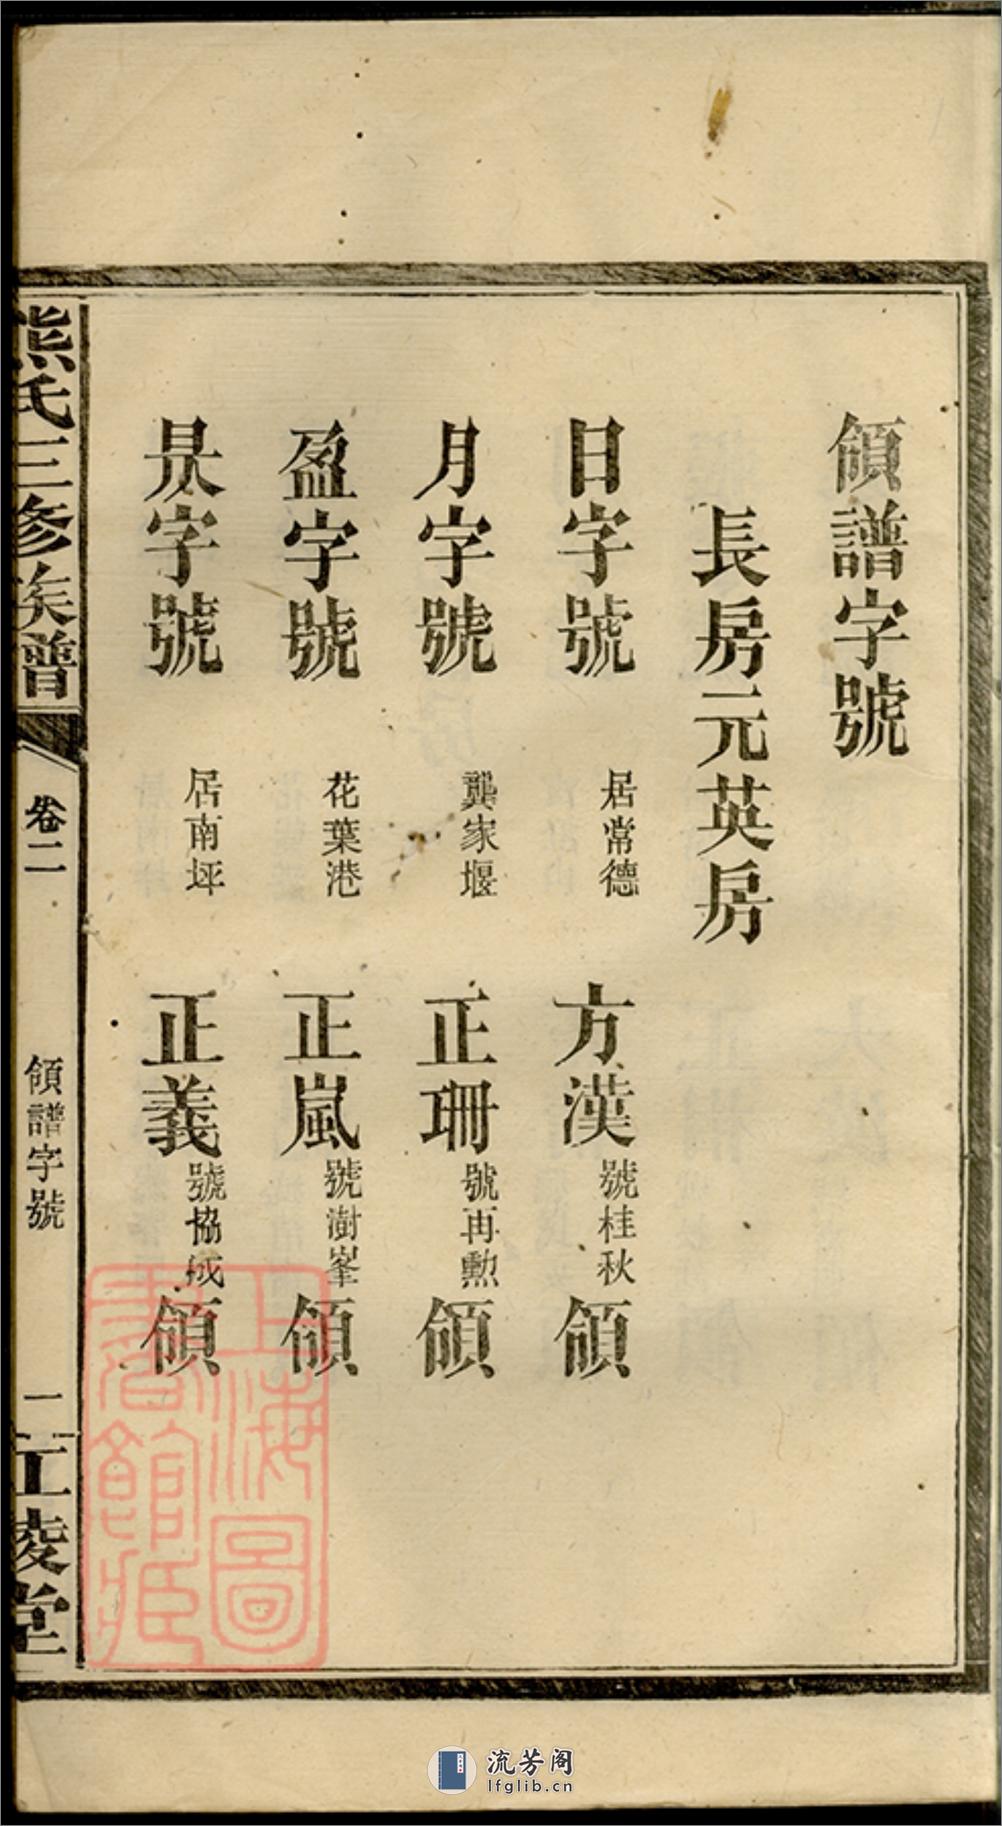 領譜字號
長房元英房
日字號 居常德 方漢 號桂秋 領
月字號 龔家堰 正珊 號再勲 領
盈字號 花葉港 正嵐 號澍峯 領
昃字號 居南坪 正義 號協成 領
熊氏三修族譜 卷二 領譜字號 一 江陵堂
上海圖書館藏
流芳阁
lfglib.cn